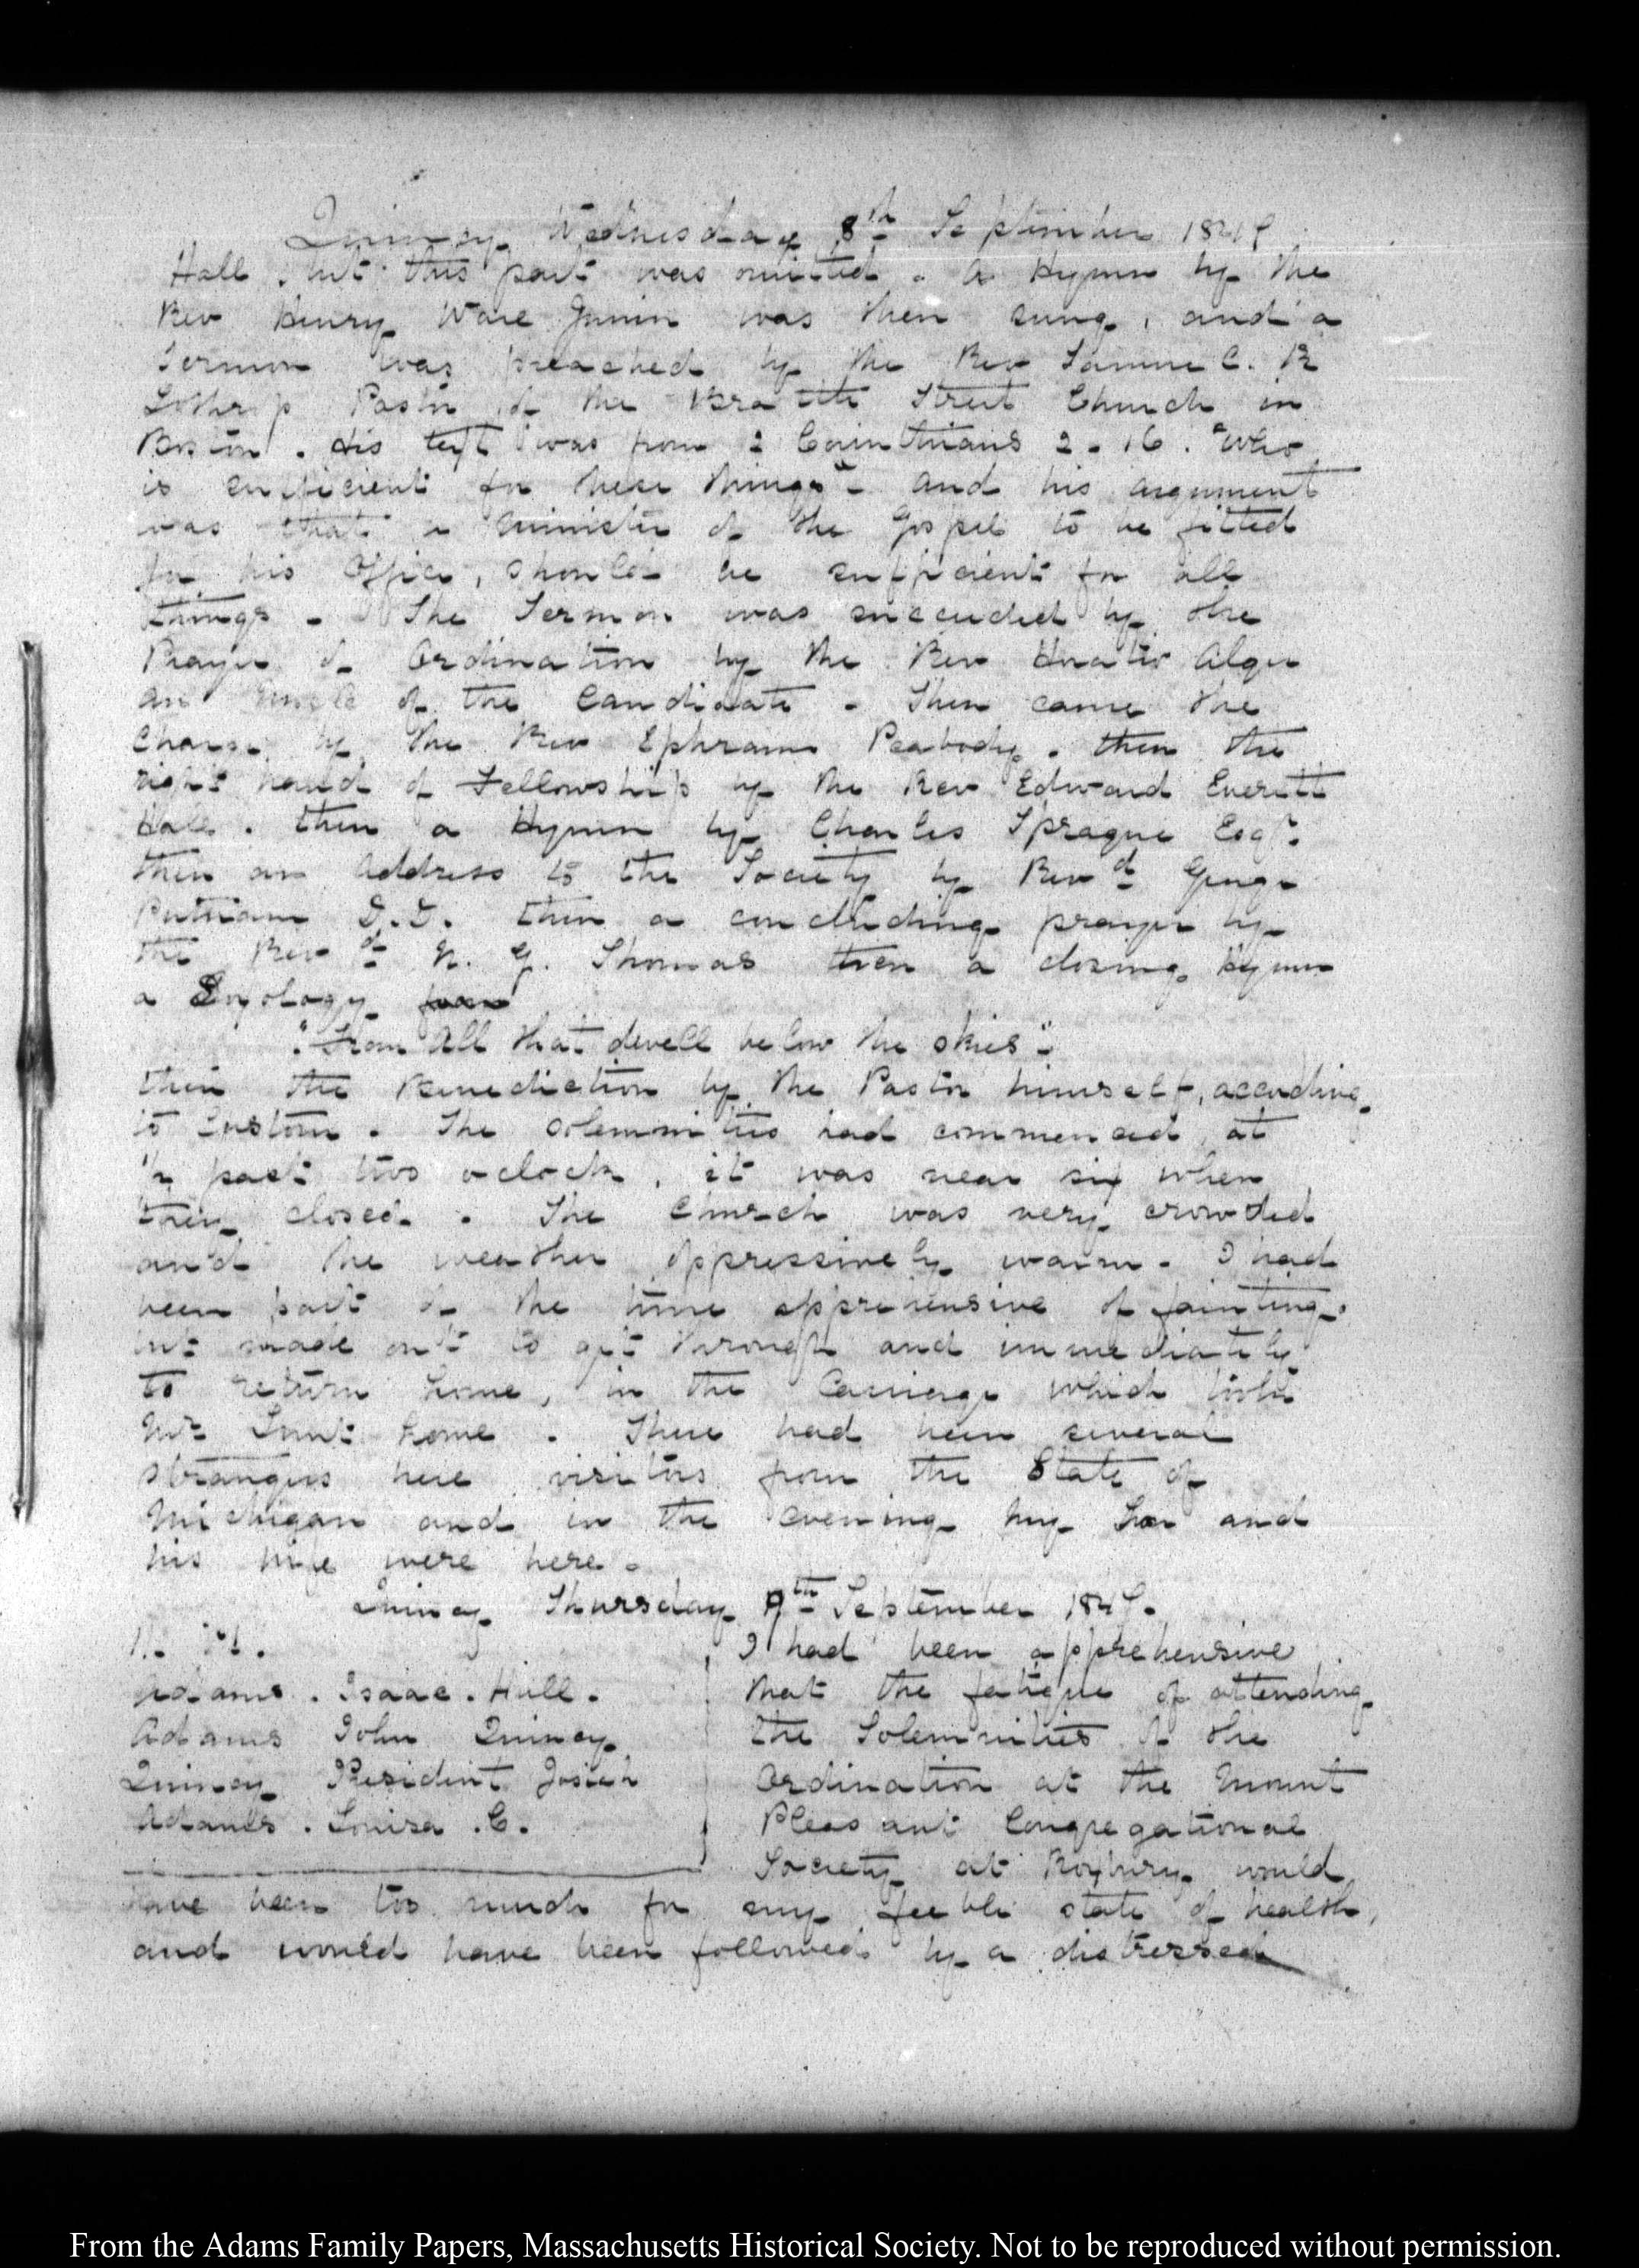 Quincy Wednesday 8th September 1847.
Hall. but this part was omitted. A Hymn by the
Rev Henry Ware Junior was then sung, and a
Sermon was preached by the Rev Samuel. K
Lothrop Pastor of the Brattle Street Church in
Boston. His text was from 2 Corinthians 2. 16. "Who
is sufficient for these things"- and his argument
was that a Minister of the Gospel to be fitted
for his Office, should be sufficient for all
things - The Sermon was succeeded by the
Prayer of Ordination by the Rev Horatio Alger
an Uncle of the Candidate. Then came the
Charge by the Rev Ephraim Peabody. then the
right hand of Fellowship by the Rev Edward Everett
Hale. then a Hymn by Charles Sprague Esqr.
then an Address to the Society by Revd George
Putnam D.D. then a concluding prayer by
the Revd M. G. Thomas then a closing Hymn
a Doxology from
"From all that dwell below the skies"-
then the Benediction by the Pastor himself, according
to Custom. The solemnities had commenced at
1/2 past two o clock, it was near six when
they closed. The Church was very crowded
and the weather oppressively warm. I had
been part of the time apprehensive of fainting.
but made out to get through and immediately
to return home, in the Carriage which took
Mr Lunt home. There had been several
strangers here visitors from the State of
Michigan and in the evening my Son and
his wife were here.
Quincy Thursday 9th September 1847.
I had been apprehensive
Adams. Isaac. Hull. that the fatigue of attending
Adams John Quincy the Solemnities of the
Quincy President Josiah Ordination at the Mount
Adams. Louisa. C. Pleasant Congregational
Society at Roxbury would
have been too much for my feeble state of health,
and would have been followed by a distressed
From the Adams Family Papers, Massachusetts Historical Society. Not to be reproduced without permission.